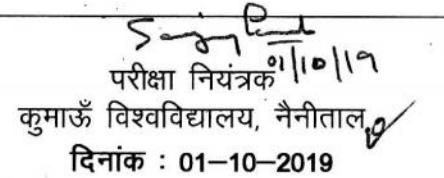 01/10/19
परीक्षा नियंत्रक
कुमाऊँ विश्वविद्यालय, नैनीताल
दिनांक : 01–10–2019